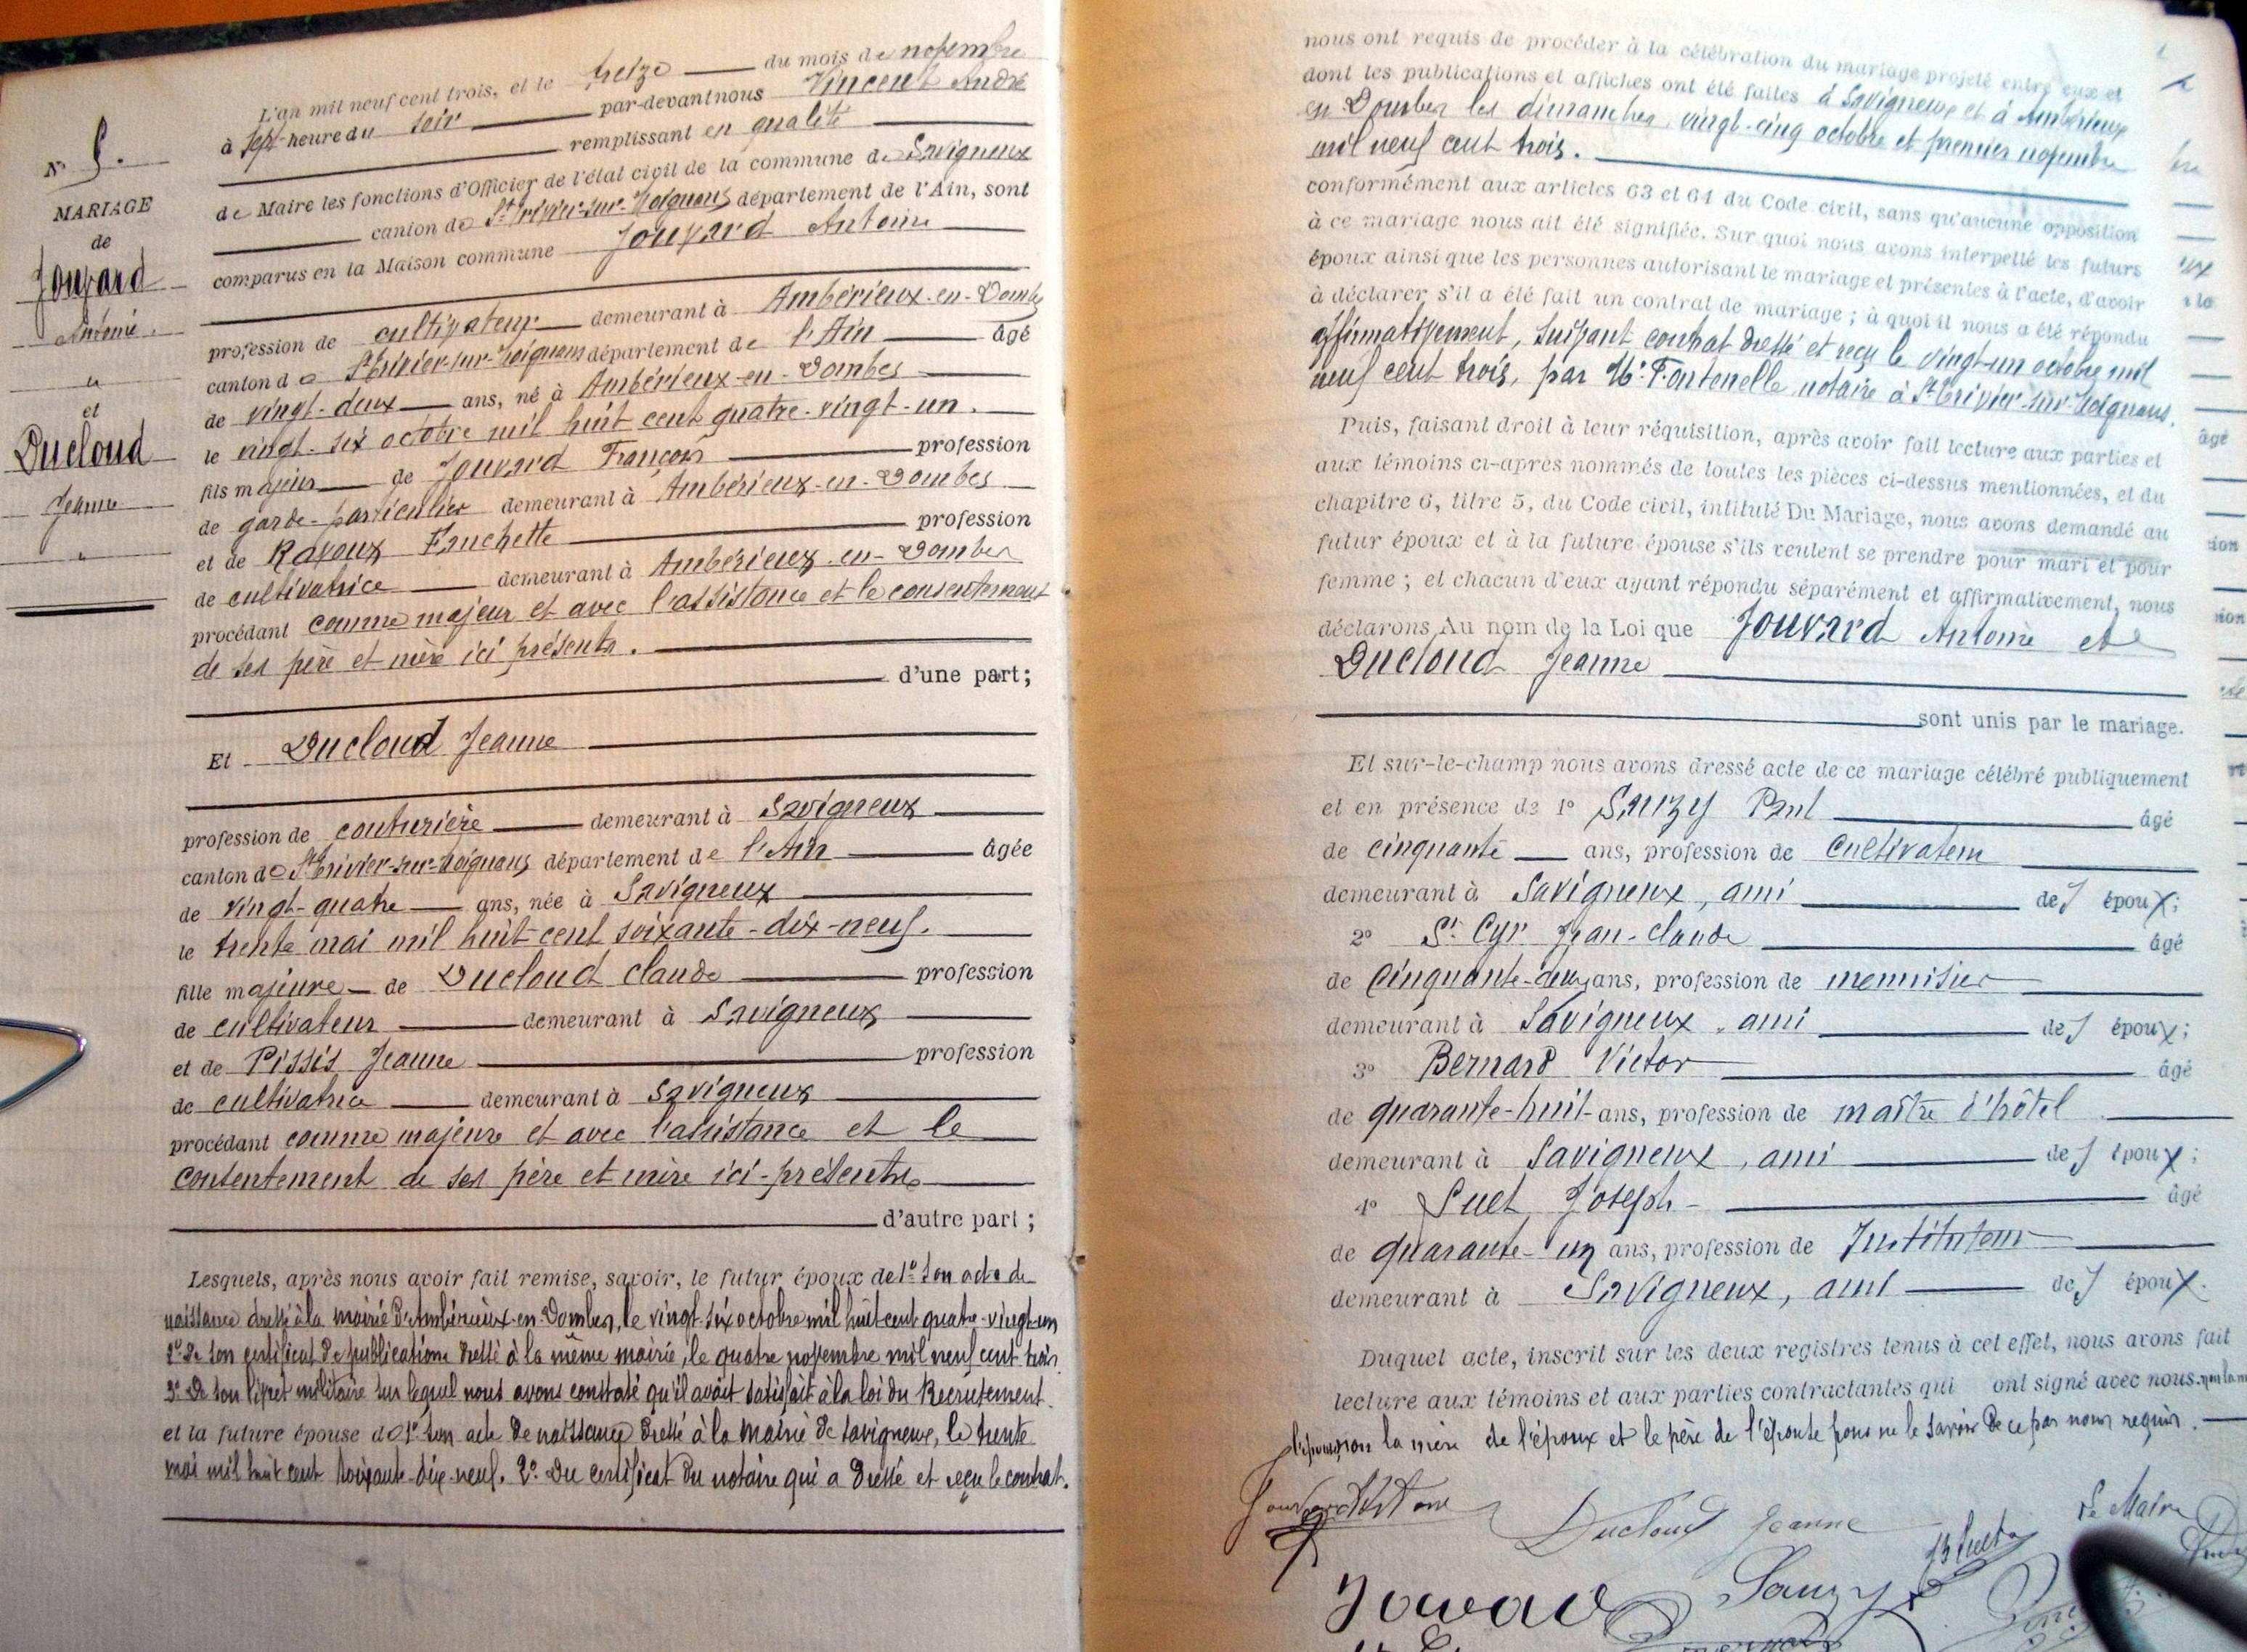 N° 5.
MARIAGE
de
Jouvard
Antoine.
"
et
Ducloud
Jeanne
"
L'an mil neuf cent trois, et le treize du mois de novembre
à sept heure du soir par-devant nous Vincent André
remplissant en qualité
de Maire les fonctions d'Officier de l'état civil de la commune de Savigneux
canton de St Trivier-sur-Moignans département de l'Ain, sont
comparus en la Maison commune Jouvard Antoine
profession de cultivateur demeurant à Ambérieux-en-Dombes
canton de St Trivier-sur-Moignans département de l'Ain âgé
de vingt-deux ans, né à Ambérieux-en-Dombes
le vingt-six octobre mil huit cent quatre-vingt-un.
fils majeur de Jouvard François profession
de garde-particulier demeurant à Ambérieux-en-Dombes
et de Ravoux Franchette profession
de cultivatrice demeurant à Ambérieux-en-Dombes
procédant comme majeur et avec l'assistance et le consentement
de ses père et mère ici présents.
d'une part;
Et Ducloud Jeanne
profession de couturière demeurant à Savigneux
canton de St Trivier-sur-Moignans département de l'Ain âgée
de vingt-quatre ans, née à Savigneux
le trente mai mil huit cent soixante-dix-neuf.
fille majeure de Ducloud Claude profession
de cultivateur demeurant à Savigneux
et de Pissis Jeanne profession
de cultivatrice demeurant à Savigneux
procédant comme majeure et avec l'assistance et le
consentement de ses père et mère ici-présents.
d'autre part;
Lesquels, après nous avoir fait remise, savoir, le futur époux de 1° son acte de
naissance dressé à la mairie d'Ambérieux-en-Dombes, le vingt-six octobre mil huit cent quatre-vingt-un
2° De son certificat de publications dressé à la même mairie, le quatre novembre mil neuf cent trois
3° De son livret militaire sur lequel nous avons constaté qu'il avait satisfait à la loi du Recrutement.
et la future épouse de 1° son acte de naissance dressé à la mairie de Savigneux, le trente
mai mil huit cent soixante-dix-neuf. 2° Du certificat du notaire qui a dressé et reçu le contrat.
nous ont requis de procéder à la célébration du mariage projeté entre eux et
dont les publications et affiches ont été faites à Savigneux et à Ambérieux
en Dombes les dimanches, vingt-cinq octobre et premier novembre
mil neuf cent trois.
conformément aux articles 63 et 64 du Code civil, sans qu'aucune opposition
à ce mariage nous ait été signifiée. Sur quoi nous avons interpellé les futurs
époux ainsi que les personnes autorisant le mariage et présentes à l'acte, d'avoir
à déclarer s'il a été fait un contrat de mariage; à quoi il nous a été répondu
affirmativement, suivant contrat dressé et reçu le vingt-un octobre mil
neuf cent trois, par Me Fontenelle notaire à St Trivier-sur-Moignans.
Puis, faisant droit à leur réquisition, après avoir fait lecture aux parties et
aux témoins ci-après nommés de toutes les pièces ci-dessus mentionnées, et du
chapitre 6, titre 5, du Code civil, intitulé Du Mariage, nous avons demandé au
futur époux et à la future épouse s'ils veulent se prendre pour mari et pour
femme; et chacun d'eux ayant répondu séparément et affirmativement, nous
déclarons Au nom de la Loi que Jouvard Antoine et
Ducloud Jeanne
sont unis par le mariage.
Et sur-le-champ nous avons dressé acte de ce mariage célébré publiquement
et en présence de 1° Sauzy Paul âgé
de cinquante ans, profession de cultivateur
demeurant à Savigneux, ami des époux;
2° St Cyr Jean-Claude âgé
de cinquante-deux ans, profession de menuisier
demeurant à Savigneux, ami des époux;
3° Bernard Victor âgé
de quarante-huit ans, profession de maître d'hôtel
demeurant à Savigneux, ami des époux;
4° Suet Joseph âgé
de quarante-un ans, profession de Instituteur
demeurant à Savigneux, ami des époux.
Duquel acte, inscrit sur les deux registres tenus à cet effet, nous avons fait
lecture aux témoins et aux parties contractantes qui ont signé avec nous
la mère de l'époux et le père de l'épouse pour ne le savoir de ce par nous requis.
Jouvard Antoine
Ducloud Jeanne
Le Maire
Jouvard
Sauzy